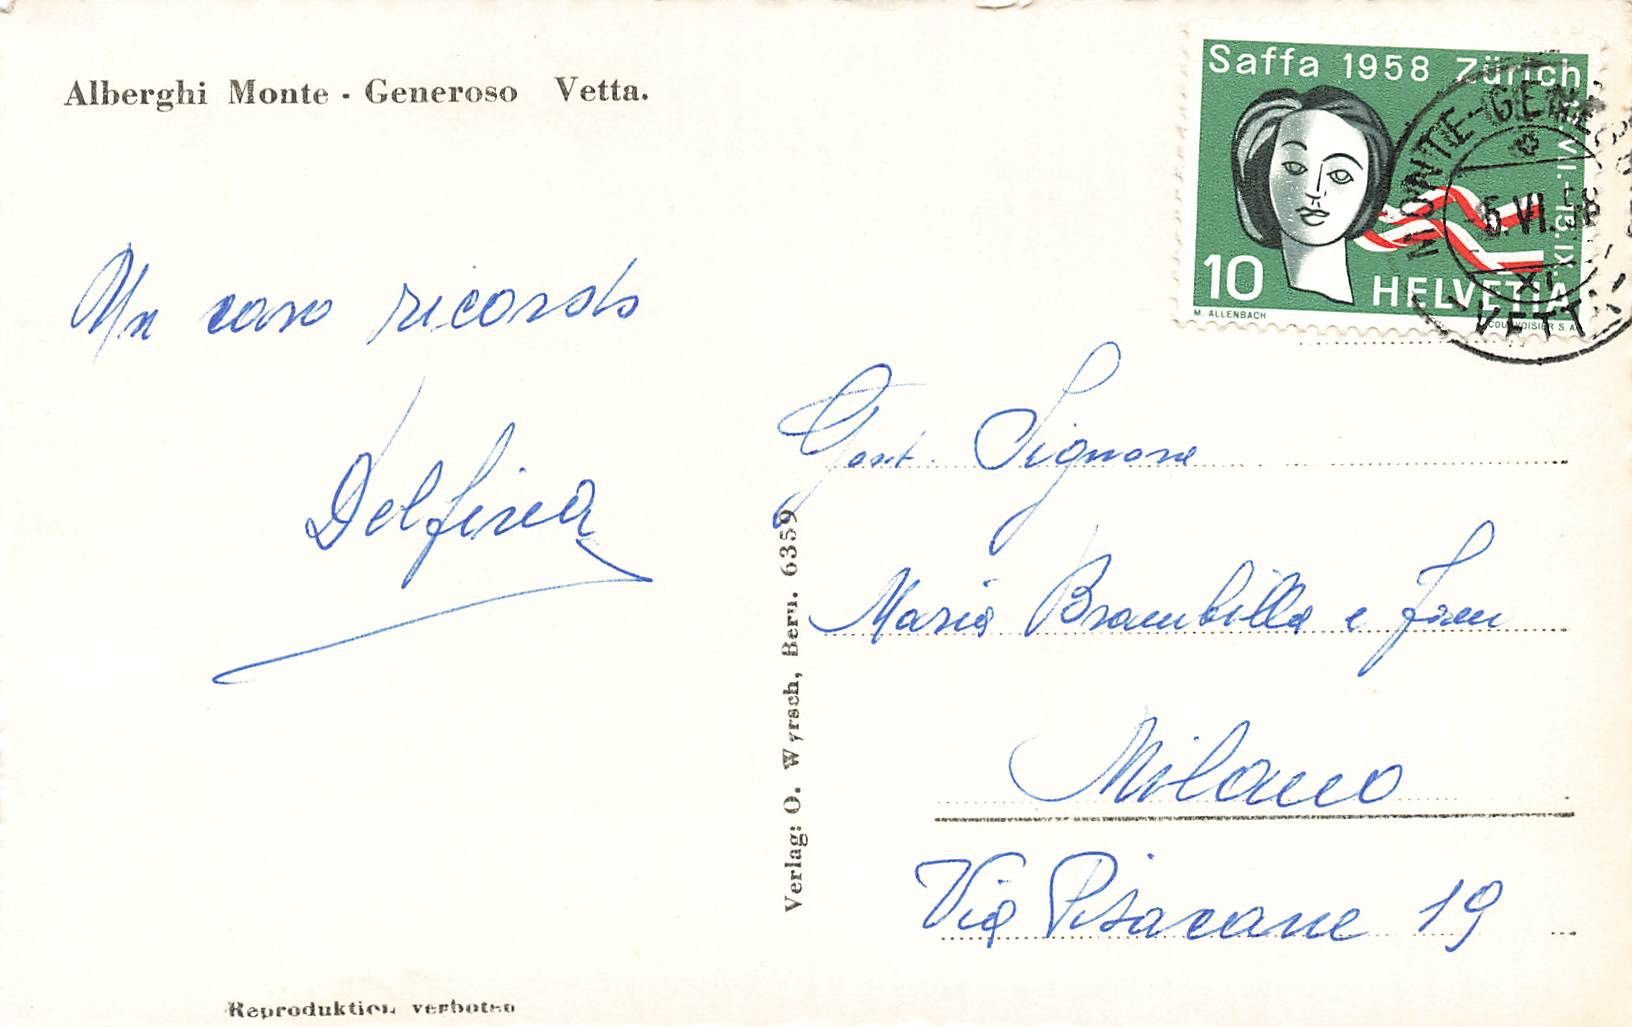 Alberghi Monte - Generoso Vetta.
Saffa 1958 Zürich
VII.-15.IX.
10 HELVETIA
M. ALLENBACH
COURVOISIER S.A.
MONTE-GENEROSO
5.VI.58
XI
VETTA
Un caro ricordo
Delfina
Gent. Signore
Maria Brambilla e
Milano
Via Pisacane 19
Verlag: O. Wyrsch, Bern. 6359
Reproduktion verboten